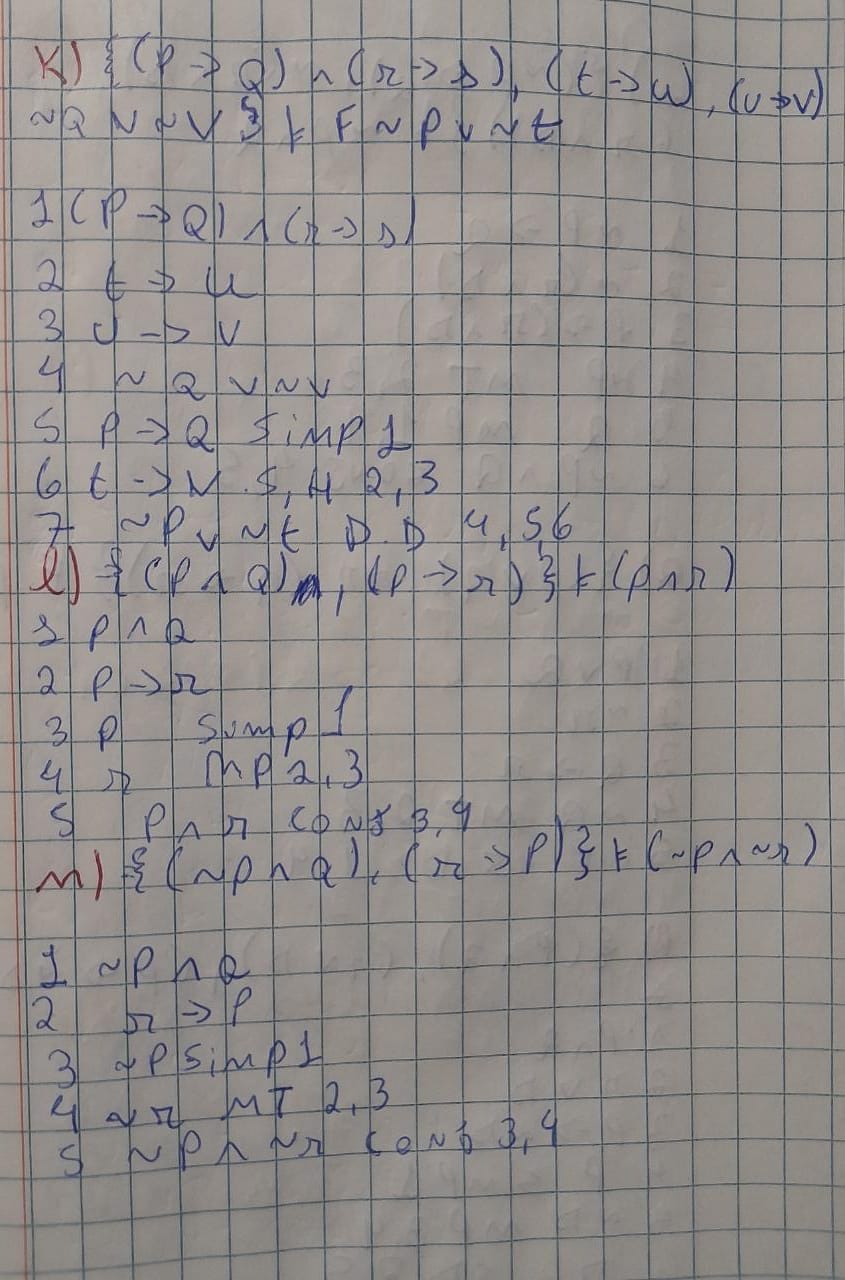 K) {(P → Q) ∧ (r → s), (t → u), (u → v)
~Q ∨ ~V } ⊢ F ~P ∨ ~t
1 (P → Q) ∧ (r → s)
2 t → u
3 U → V
4 ~Q ∨ ~V
5 P → Q Simp 1
6 t → V S, H 2,3
7 ~P ∨ ~t D.D 4,5,6
l) {(P ∧ Q), (P → r)} ⊢ (p ∧ r)
1 P ∧ Q
2 P → r
3 P Simp 1
4 r MP 2,3
5 P ∧ r Conj 3,4
m) {(~P ∧ Q), (r → P)} ⊢ (~P ∧ ~r)
1 ~P ∧ Q
2 r → P
3 ~P Simp 1
4 ~r MT 2,3
5 ~P ∧ ~r Conj 3,4